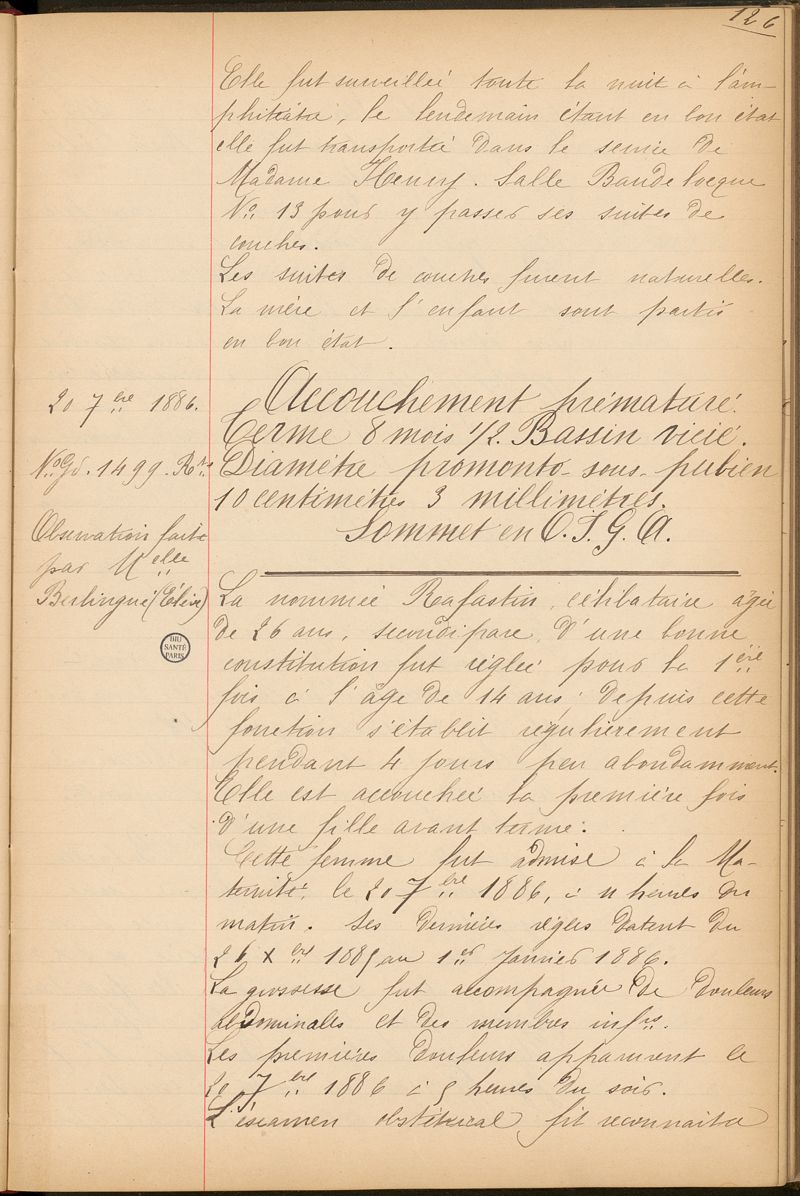 126
Elle fut surveillée toute la nuit à l'am-
phitéâtre, le lendemain étant en bon état
elle fut transportée dans le service de
Madame Henry. Salle Baudelocque
No. 13 pour y passer ses suites de
couches.
Les suites de couches furent naturelles.
La mère et l'enfant sont partis
en bon état.
20 7bre 1886.
No Gd. 1499.
Observation faite
par Melle
Berlingué (Elève)
BIU
SANTÉ
PARIS
Accouchement prématuré.
Terme 8 mois 1/2. Bassin vicié.
Diamètre promonto-sous-pubien
10 centimètres 3 millimètres.
Sommet en O.I.G.A.
La nommée Rafastin, célibataire âgée
de 26 ans, secondipare, d'une bonne
constitution fut réglée pour la 1ère
fois à l'âge de 14 ans; depuis cette
fonction s'établit régulièrement
pendant 4 jours peu abondamment.
Elle est accouchée la première fois
d'une fille avant terme.
Cette femme fut admise à la Ma-
ternité, le 20 7bre 1886, à 11 heures du
matin. Ses dernières règles datent du
26 Xbre 1885 au 1er Janvier 1886.
La grossesse fut accompagnée de douleurs
abdominales et des membres infrs.
Les premières douleurs apparurent le
20 7bre 1886 à 5 heures du soir.
L'examen obstétrical fit reconnaître